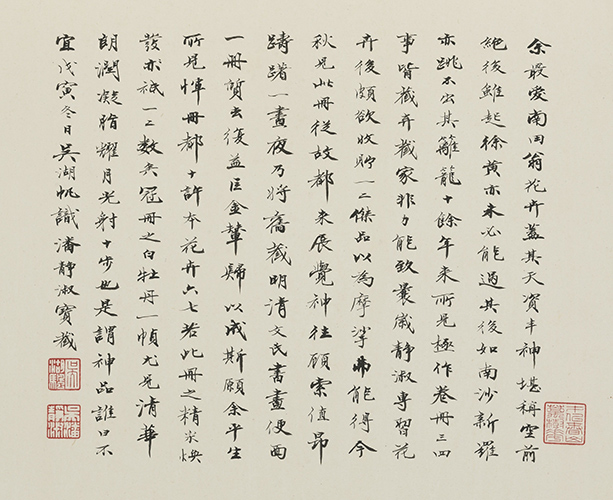 余最愛南田翁花卉蓋其天資丰神堪稱空前
絕後雖起徐黃亦未必能過其後如南沙新羅
亦跳不出其離籠十餘年來所見極作卷冊三四
事皆藏弆藏家非力能致曩歲靜淑專習花
卉後頗欲收貯一二傑品以為摩挲弗能得今
秋見此冊從故都來展覺神往顧索值昂
躊躇一晝夜乃將舊藏明清文氏書畫便面
一冊質去復益巨金輦歸以成斯願余平生
所見惲冊都十許本花卉六七若此冊之精采煥
發亦祇一二數矣冠冊之白牡丹一幀尤見清華
朗潤凝脂耀月光射十步也是謂神品誰曰不
宜戊寅冬日吳湖帆識潘靜淑寶藏